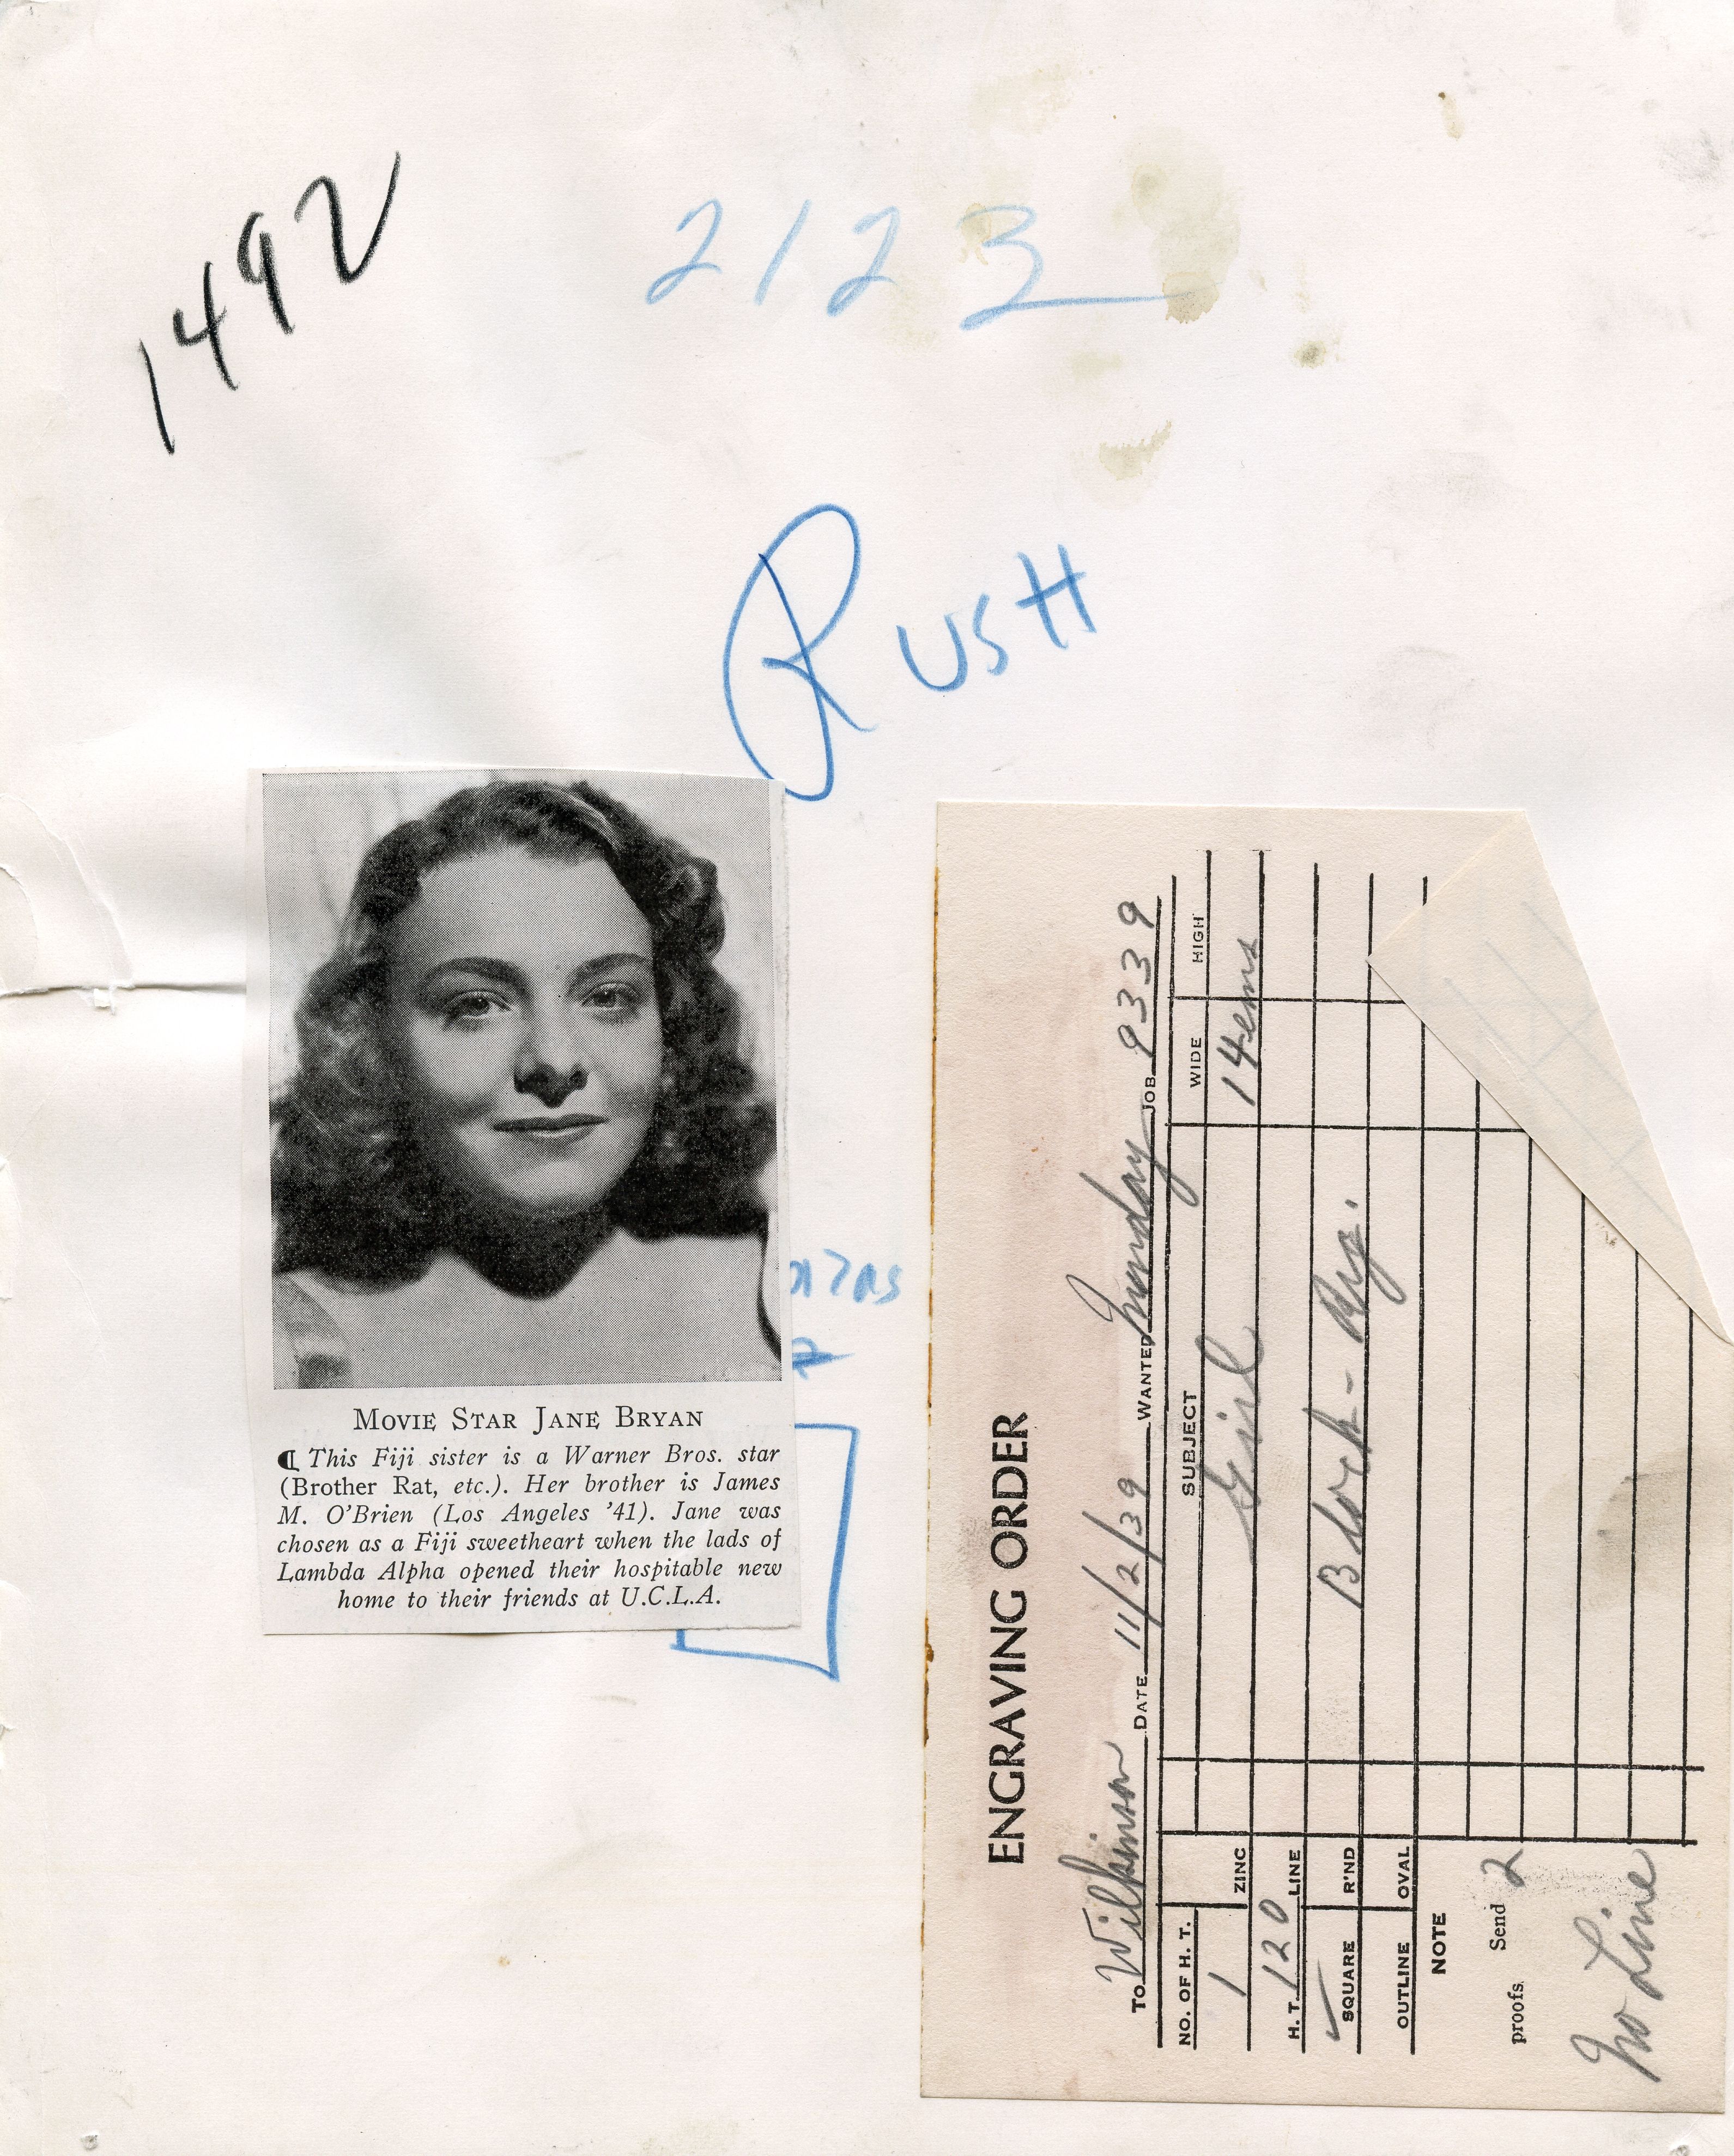 1492
2123
RUSH
MOVIE STAR JANE BRYAN
This Fiji sister is a Warner Bros. star
(Brother Rat, etc.). Her brother is James
M. O'Brien (Los Angeles '41). Jane was
chosen as a Fiji sweetheart when the lads of
Lambda Alpha opened their hospitable new
home to their friends at U.C.L.A.
ENGRAVING ORDER
TO Wilkinson DATE 11/2/39 WANTED Monday JOB 9339
NO. OF H. T. SUBJECT WIDE HIGH
1 ZINC Girl 14ems
H. T. 120 LINE
SQUARE R'ND Block-
OUTLINE OVAL
NOTE
Send 2
proofs
No Line